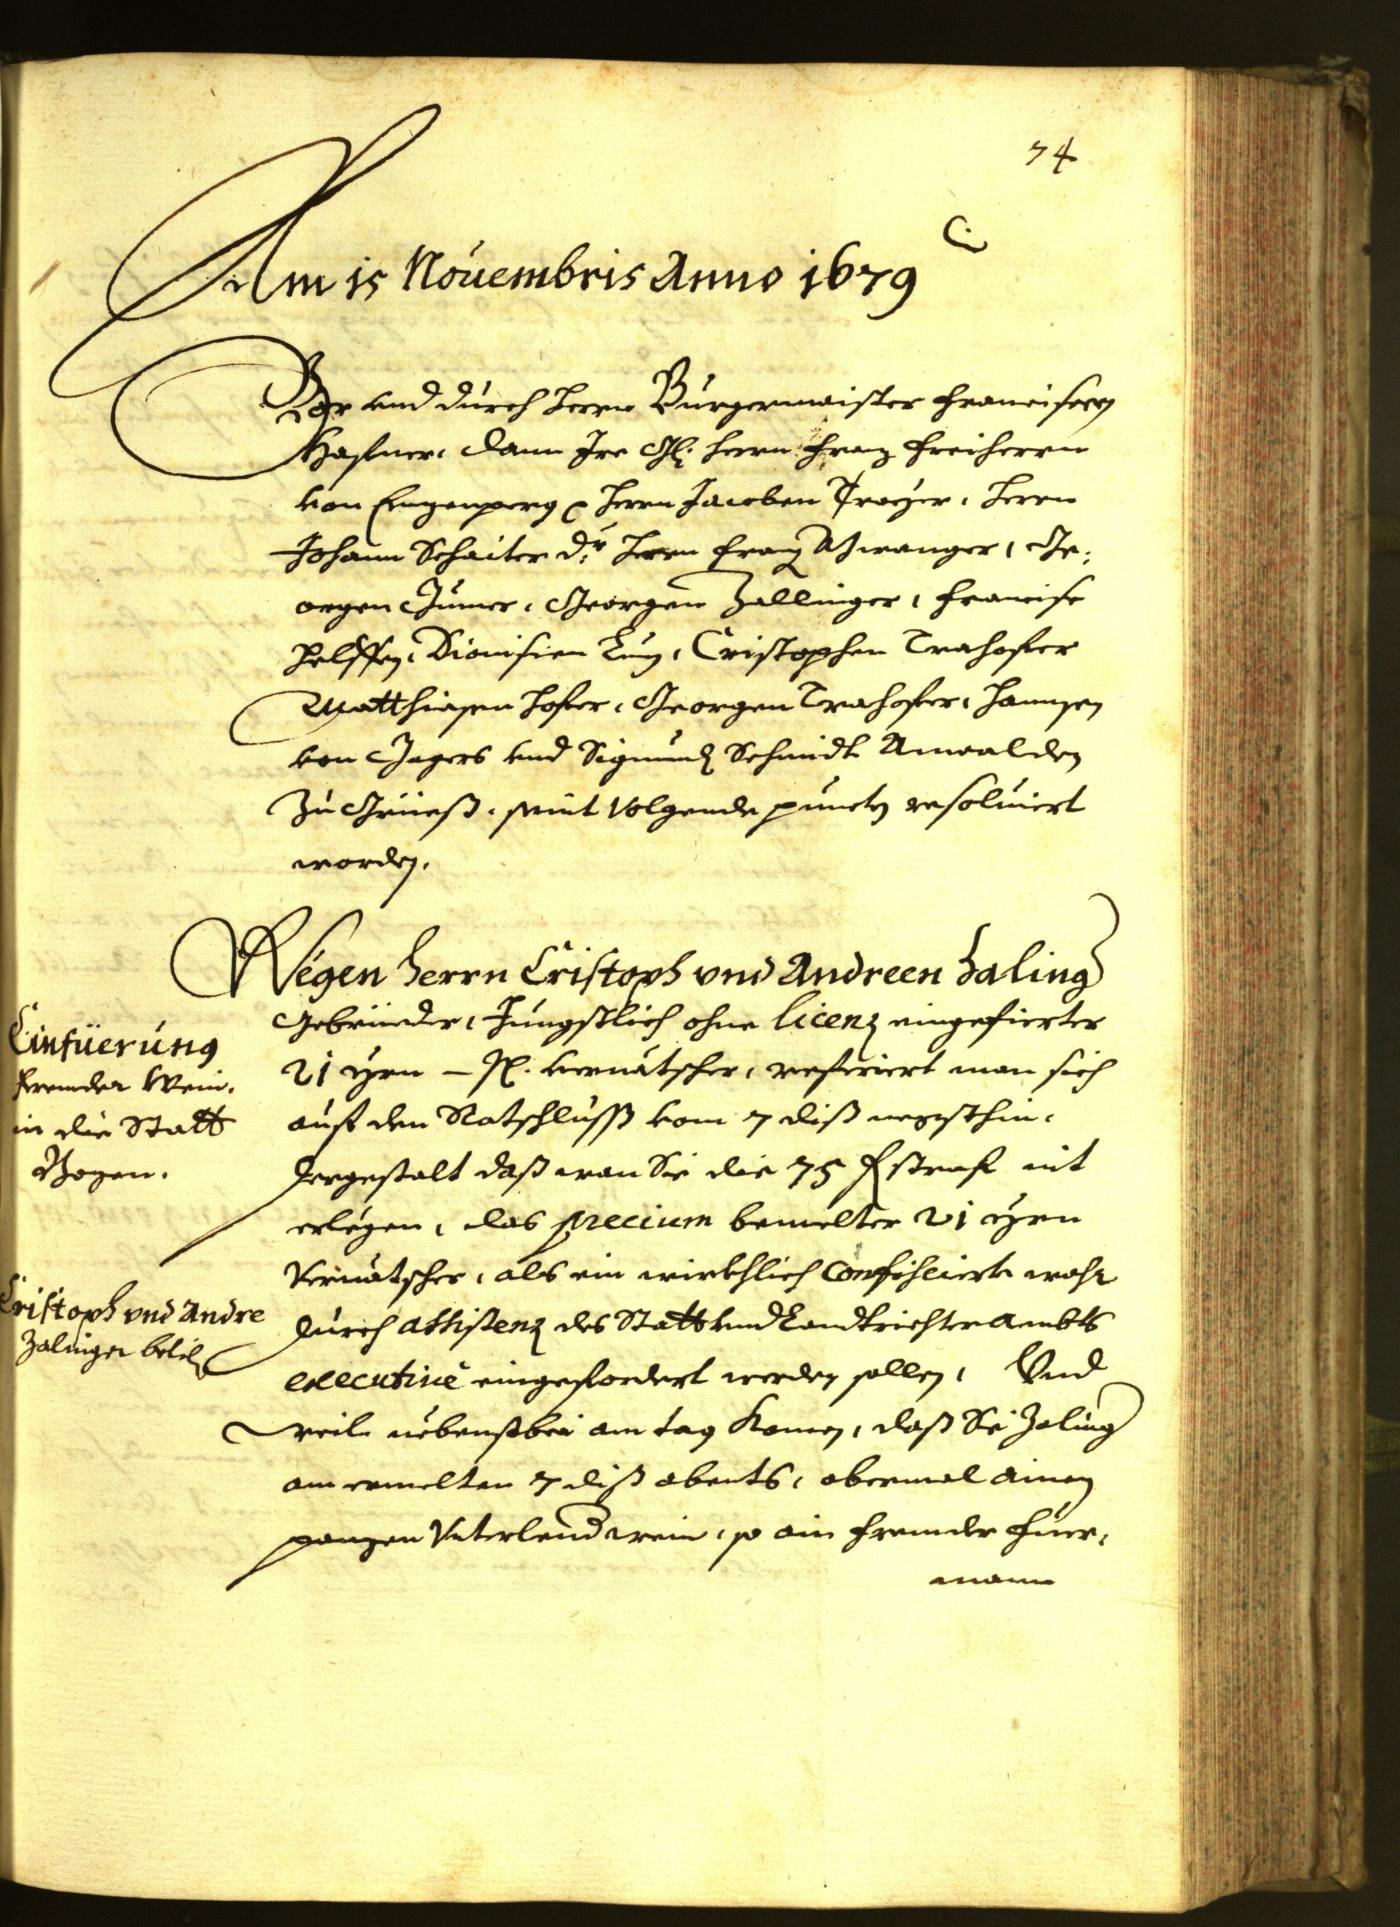 74
Am 15 Nouembris Anno 1679
Vor vnd durch Herrn Burgermaister Francisen
Hafner, dann Ire Herrn Franz Freiherrn
von Herrn Jacoben Troyer, Herrn
Johann Schaiter Dr Herrn Franz Ge:
orgen Gumer, Georgen Zallinger, Francisc
Dionisien Cristophen Trahofer
Matthiasen Hofer, Georgen Trahofer, Hannsen
von Jagers vnd Sigmund Schmidt Anwalden
zu Grieß, seint volgende puncten resoluiert
worden.
Wegen Herrn Cristoph vnd Andreen Zaling
Gebrüeder, Jüngstlich ohne licenz eingefierter
21 Yrn vernätscher, referiert man sich
auf den Ratschluss vom 7 diß negsthin,
dergestalt daß wan Sie die 75 f straf nit
erlegen, das precium bemelter 21 Yrn
Vernätscher, als ein wirkhlich Confiscierte wahr
durch assistenz des Statt vnd Landtrichter Ambts
executiuè eingefordert werden sollen, Vnd
weiln nebenstbei am tag komen, daß Sie Zaling
am ermelten 7 diß abents, abermal ainen
panzen Vnterlend wein, so ain frembder Fuer,
mann
Einfüerung
frembder Wein,
in die Statt
Bozen.
Cristoph vnd Andre
Zalinger